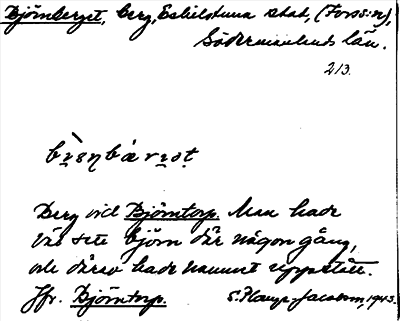 Björnberget, berg, Eskilstuna stad, (Fors:sn),
Södermanlands län.
213.
Berg vid Björntorp. Man hade
väl sett björn där någon gång,
och därav hade namnet uppstått.
Jfr. Björntorp. S. Hauge-Jacobson, 1943.